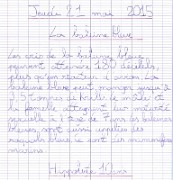 Jeudi 21 mai 2015
La baleine bleue
Les cris de la baleine bleue
peuvent atteindre 180 décibels,
plus qu'un réacteur d'avion. La
baleine bleue peut manger jusqu'à
3,5 tonnes de krill le mâle et
la femelle atteignent leur maturité
sexuelle à l'âge de 7 ans les baleines
bleues sont aussi appelées les
rorquals bleus ce sont des mammifères
marins.
Hippolyte